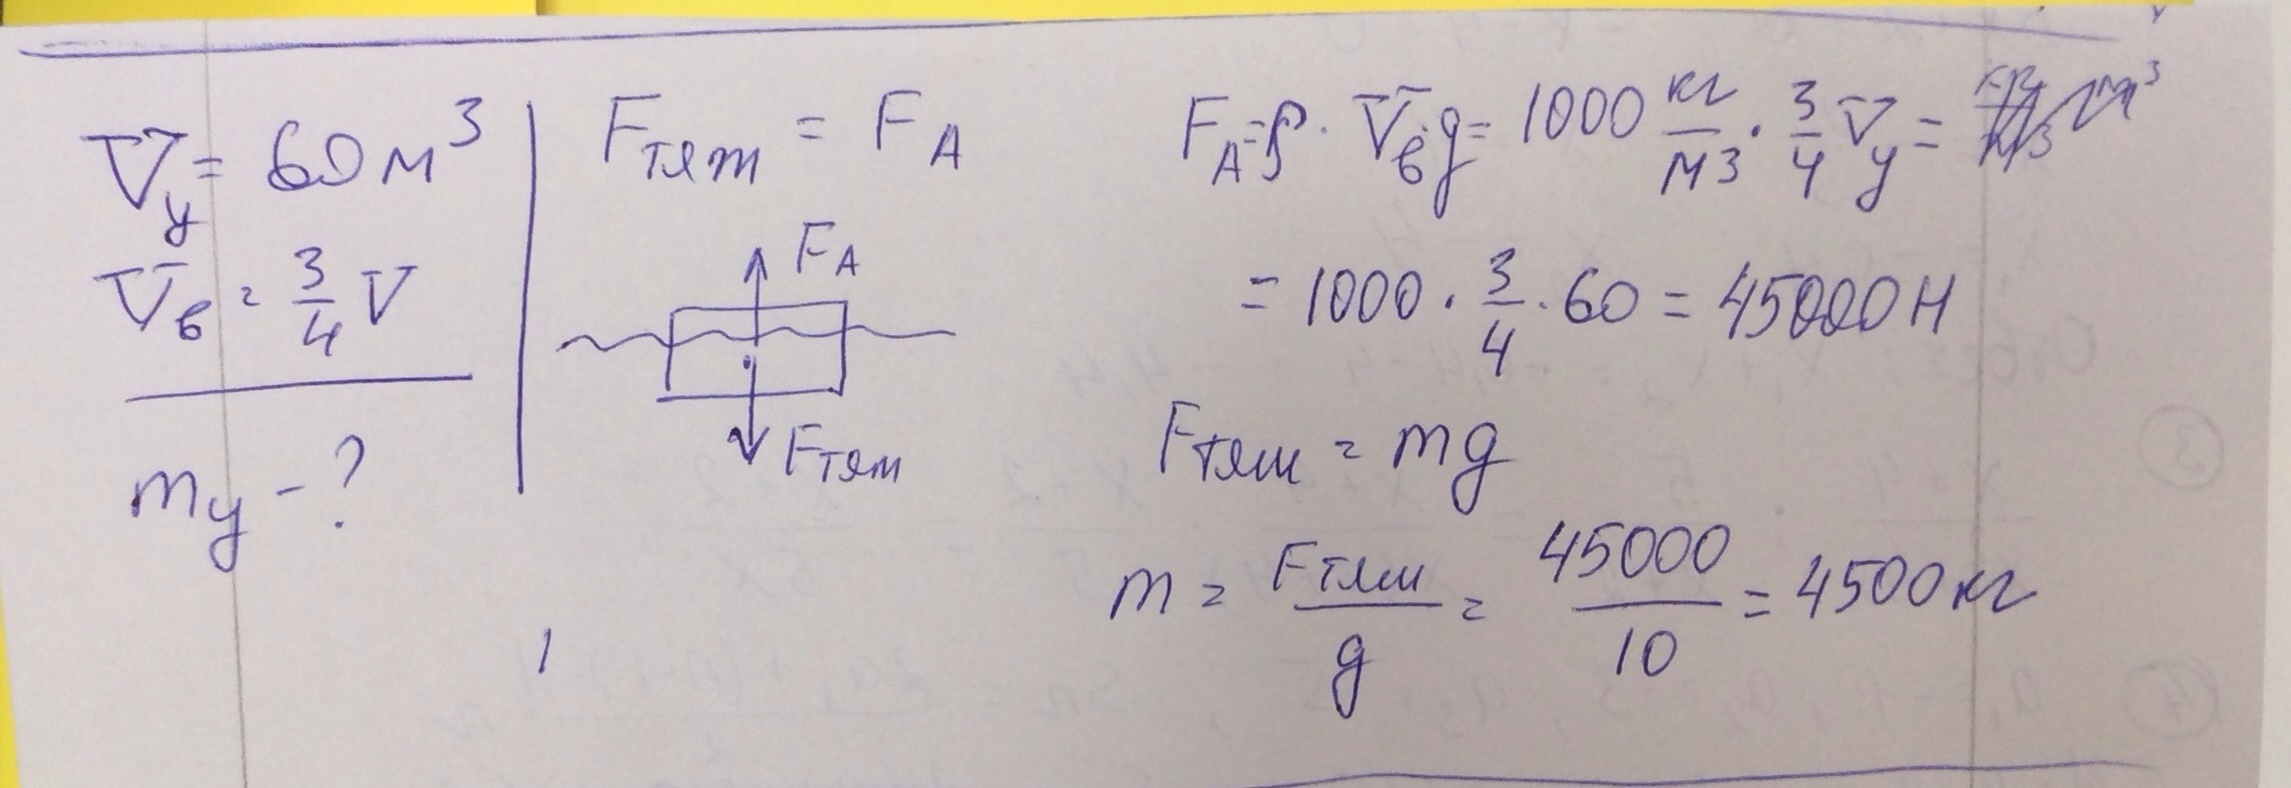 Vу = 60 м³
Vв = 3/4 V
mу - ?
Fтяж = FА
FА
Fтяж
FА = ρ · Vв · g = 1000 кг/м3 · 3/4 Vу =
= 1000 · 3/4 · 60 = 45000 Н
Fтяж = mg
m = Fтяж/g = 45000/10 = 4500 кг